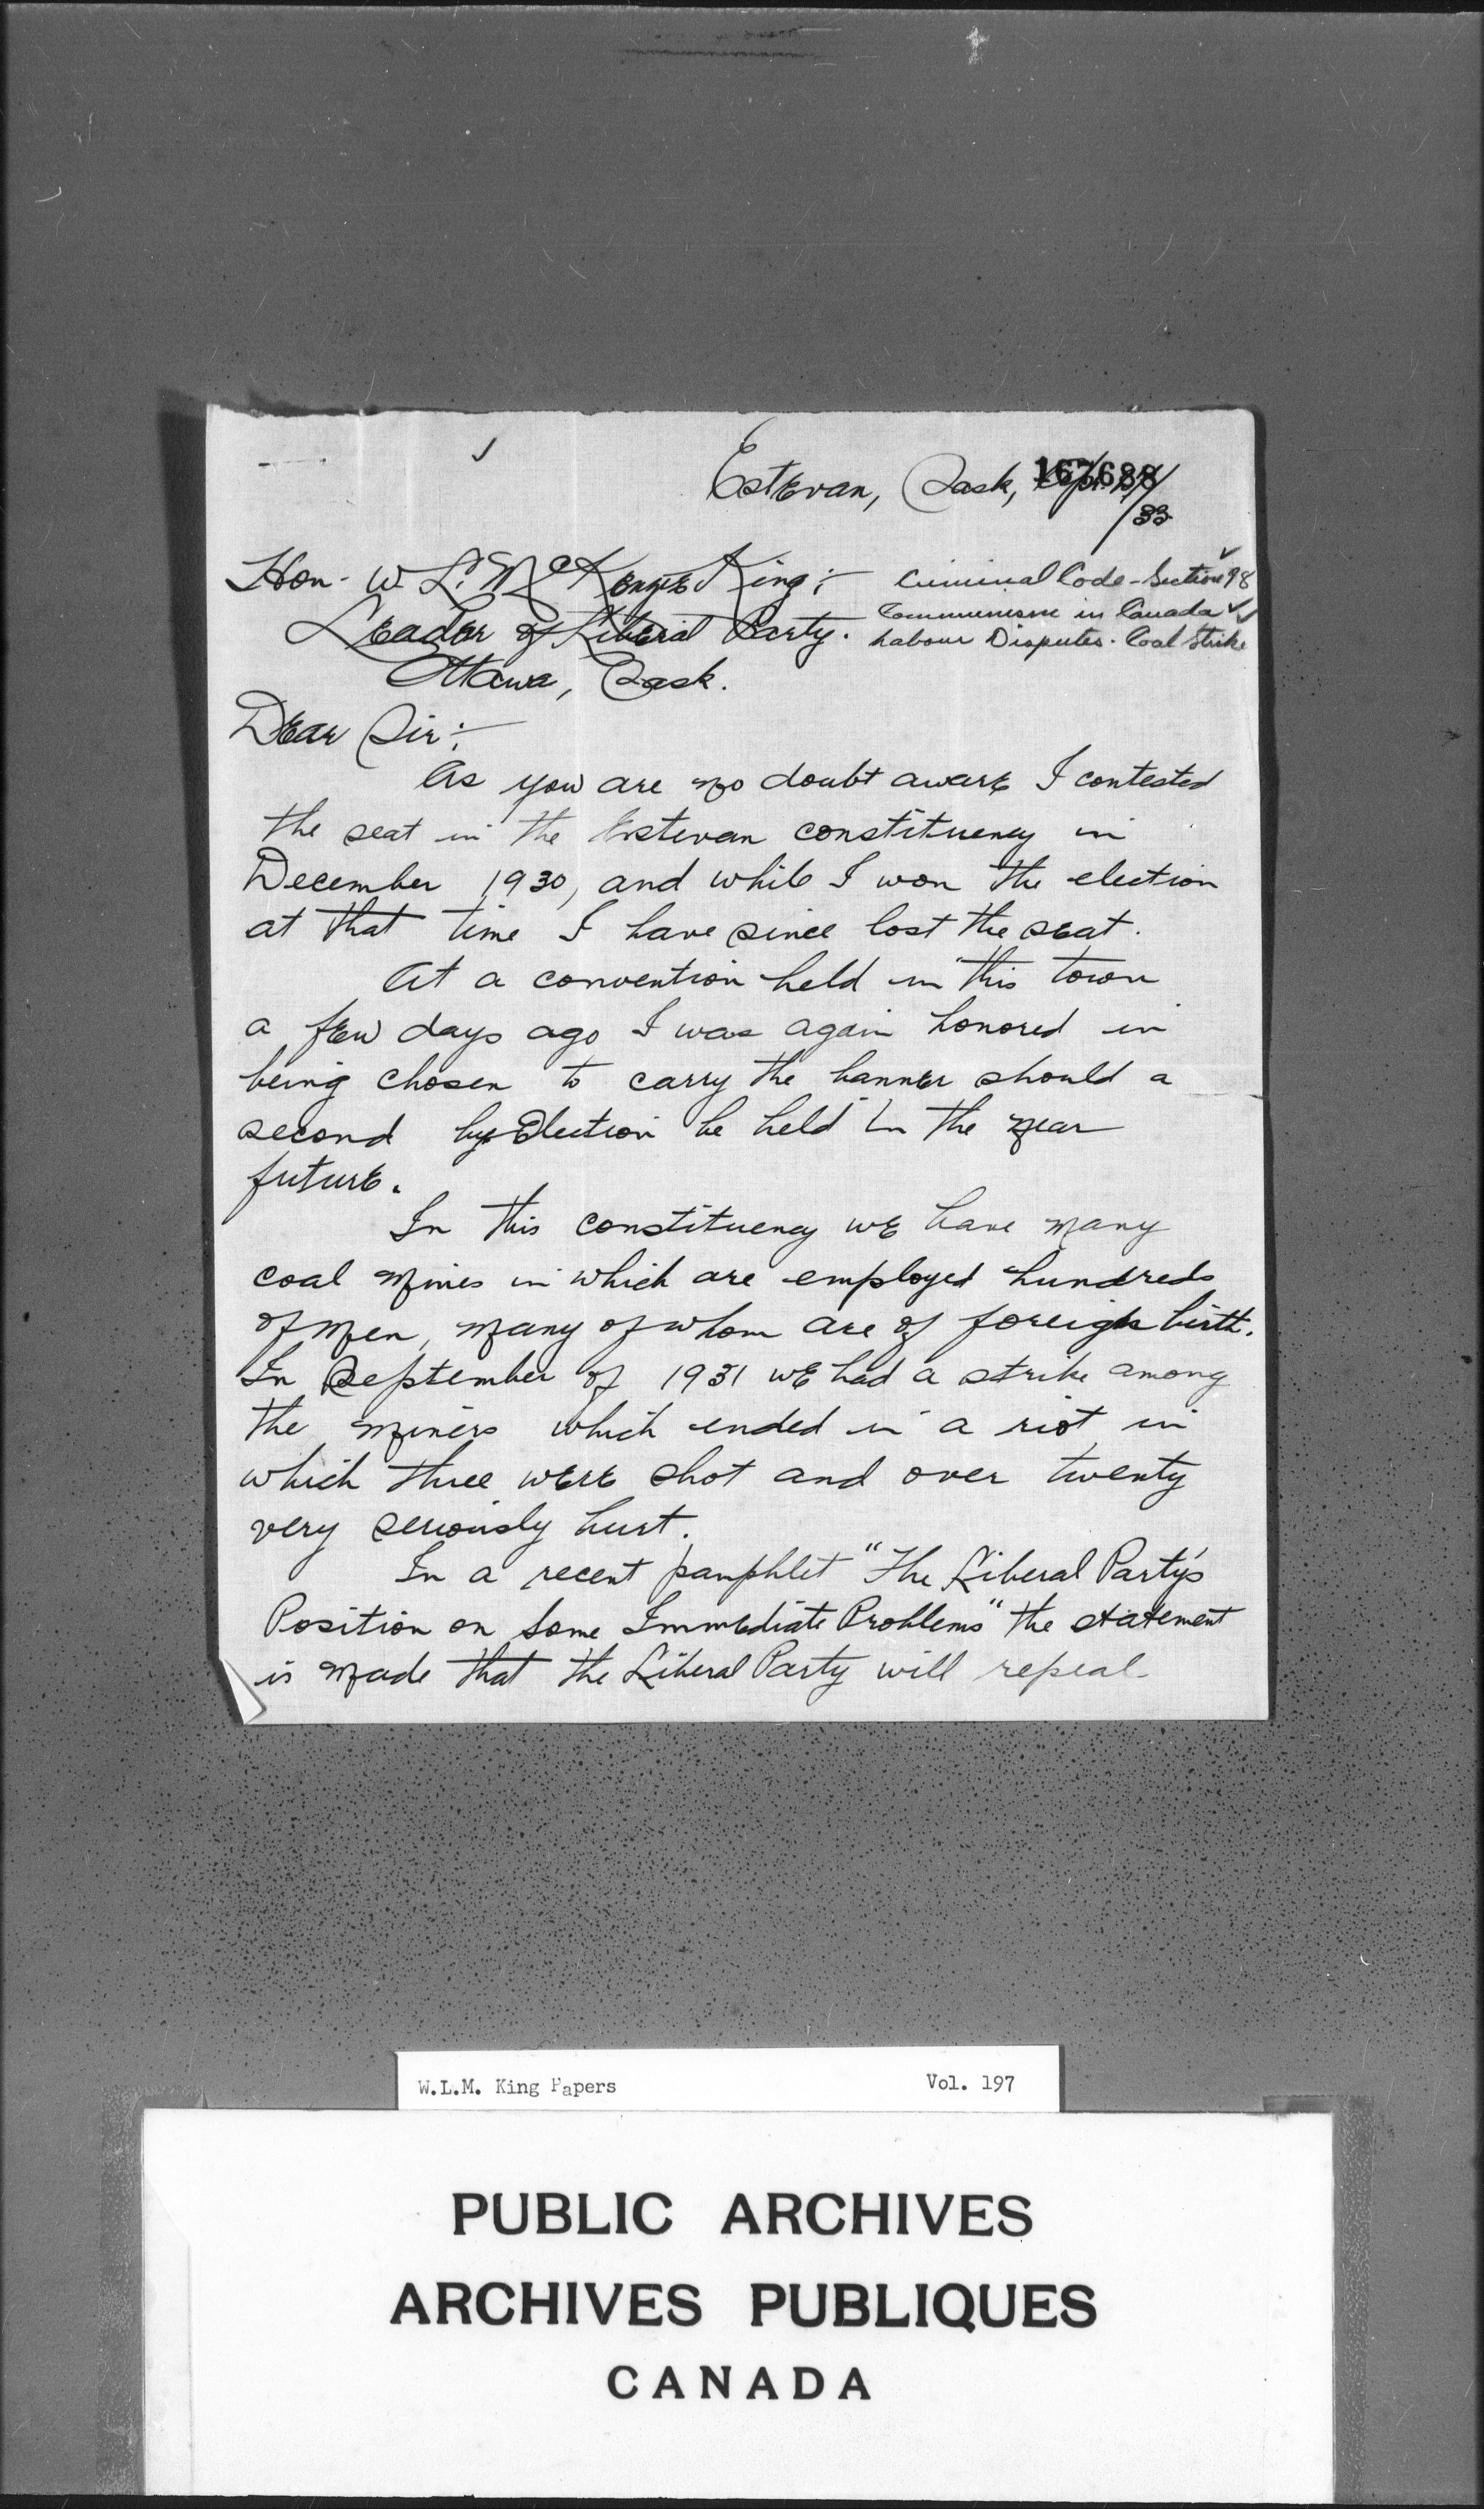 Estevan, Sask, 167688
/33
Hon. W. L. McKenzie King:-
Criminal Code - Section 98
Communism in Canada
Labour Disputes. Coal Strike
Leader of Liberal Party.
Ottawa, Sask.
Dear Sir:-
As you are no doubt aware I contested
the seat in the Estevan constituency in
December 1930, and while I won the election
at that time I have since lost the seat.
At a convention held in this town
a few days ago I was again honored in
being chosen to carry the banner should a
second by-Election be held in the near
future.
In this constituency we have many
coal mines in which are employed hundreds
of men, many of whom are of foreign birth.
In September of 1931 we had a strike among
the miners which ended in a riot in
which three were shot and over twenty
very seriously hurt.
In a recent pamphlet "The Liberal Party's
Position on Some Immediate Problems" the statement
is made that the Liberal Party will repeal
W.L.M. King Papers Vol. 197
PUBLIC ARCHIVES
ARCHIVES PUBLIQUES
CANADA